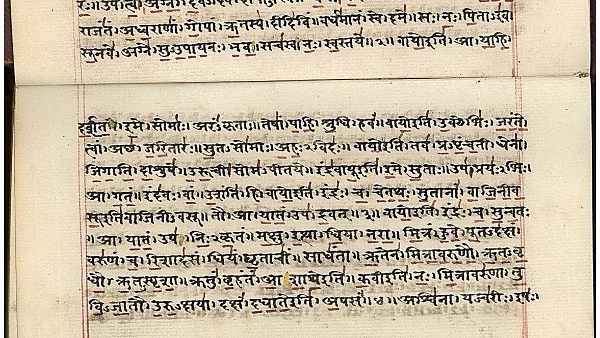 राजंतं। अध्वराणां। गोपां। ऋतस्य। दीदिविं॥ वर्धमानं। स्वे। दमे॥ सः। नः। पिताऽइव
सूनवे। अग्ने। सुऽउपायनः। भव॥ सचस्व। नः। स्वस्तये॥२॥ वायो इति। आ। याहि
दर्शत। इमे। सोमाः। अरंऽकृताः॥ तेषां। पाहि। श्रुधि। हवं॥ वायो इति। उक्थेभिः। जरंते
त्वां। अच्छ। जरितारः॥ सुतऽसोमाः। अहःऽविदः॥ वायो इति। तव। प्रऽपृंचती। धेना
जिगाति। दाशुषे॥ उरूची। सोमऽपीतये॥ इंद्रवायू इति। इमे। सुताः॥ उप। प्रयःऽभिः।
आ। गतं॥ इंदवः। वां। उशंति। हि॥ वायो इति। इंद्रः। च। चेतथः। सुतानां। वाजिनीव
सू इति वाजिनीऽवसू॥ तौ। आ। यातं। उप। द्रवत्॥३॥ वायो इति। इंद्रः। च। सुन्वतः
॥ आ। यातं। उप। निःऽकृतं॥ मक्षु। इत्था। धिया। नरा॥ मित्रं। हुवे। पूतऽदक्षं।
वरुणं। च। रिशादसं॥ धियं। घृताचीं। साधंता॥ ऋतेन। मित्रावरुणौ। ऋतऽवृ
धौ। ऋतऽस्पृशा॥ क्रतुं। बृहंतं। आशाथे इति॥ कवी इति। नः। मित्रावरुणा। तु
विऽजातौ। उरुऽक्षया॥ दक्षं। दधाते इति। अपसं॥४॥ अश्विना। यज्वरीः। इषः।